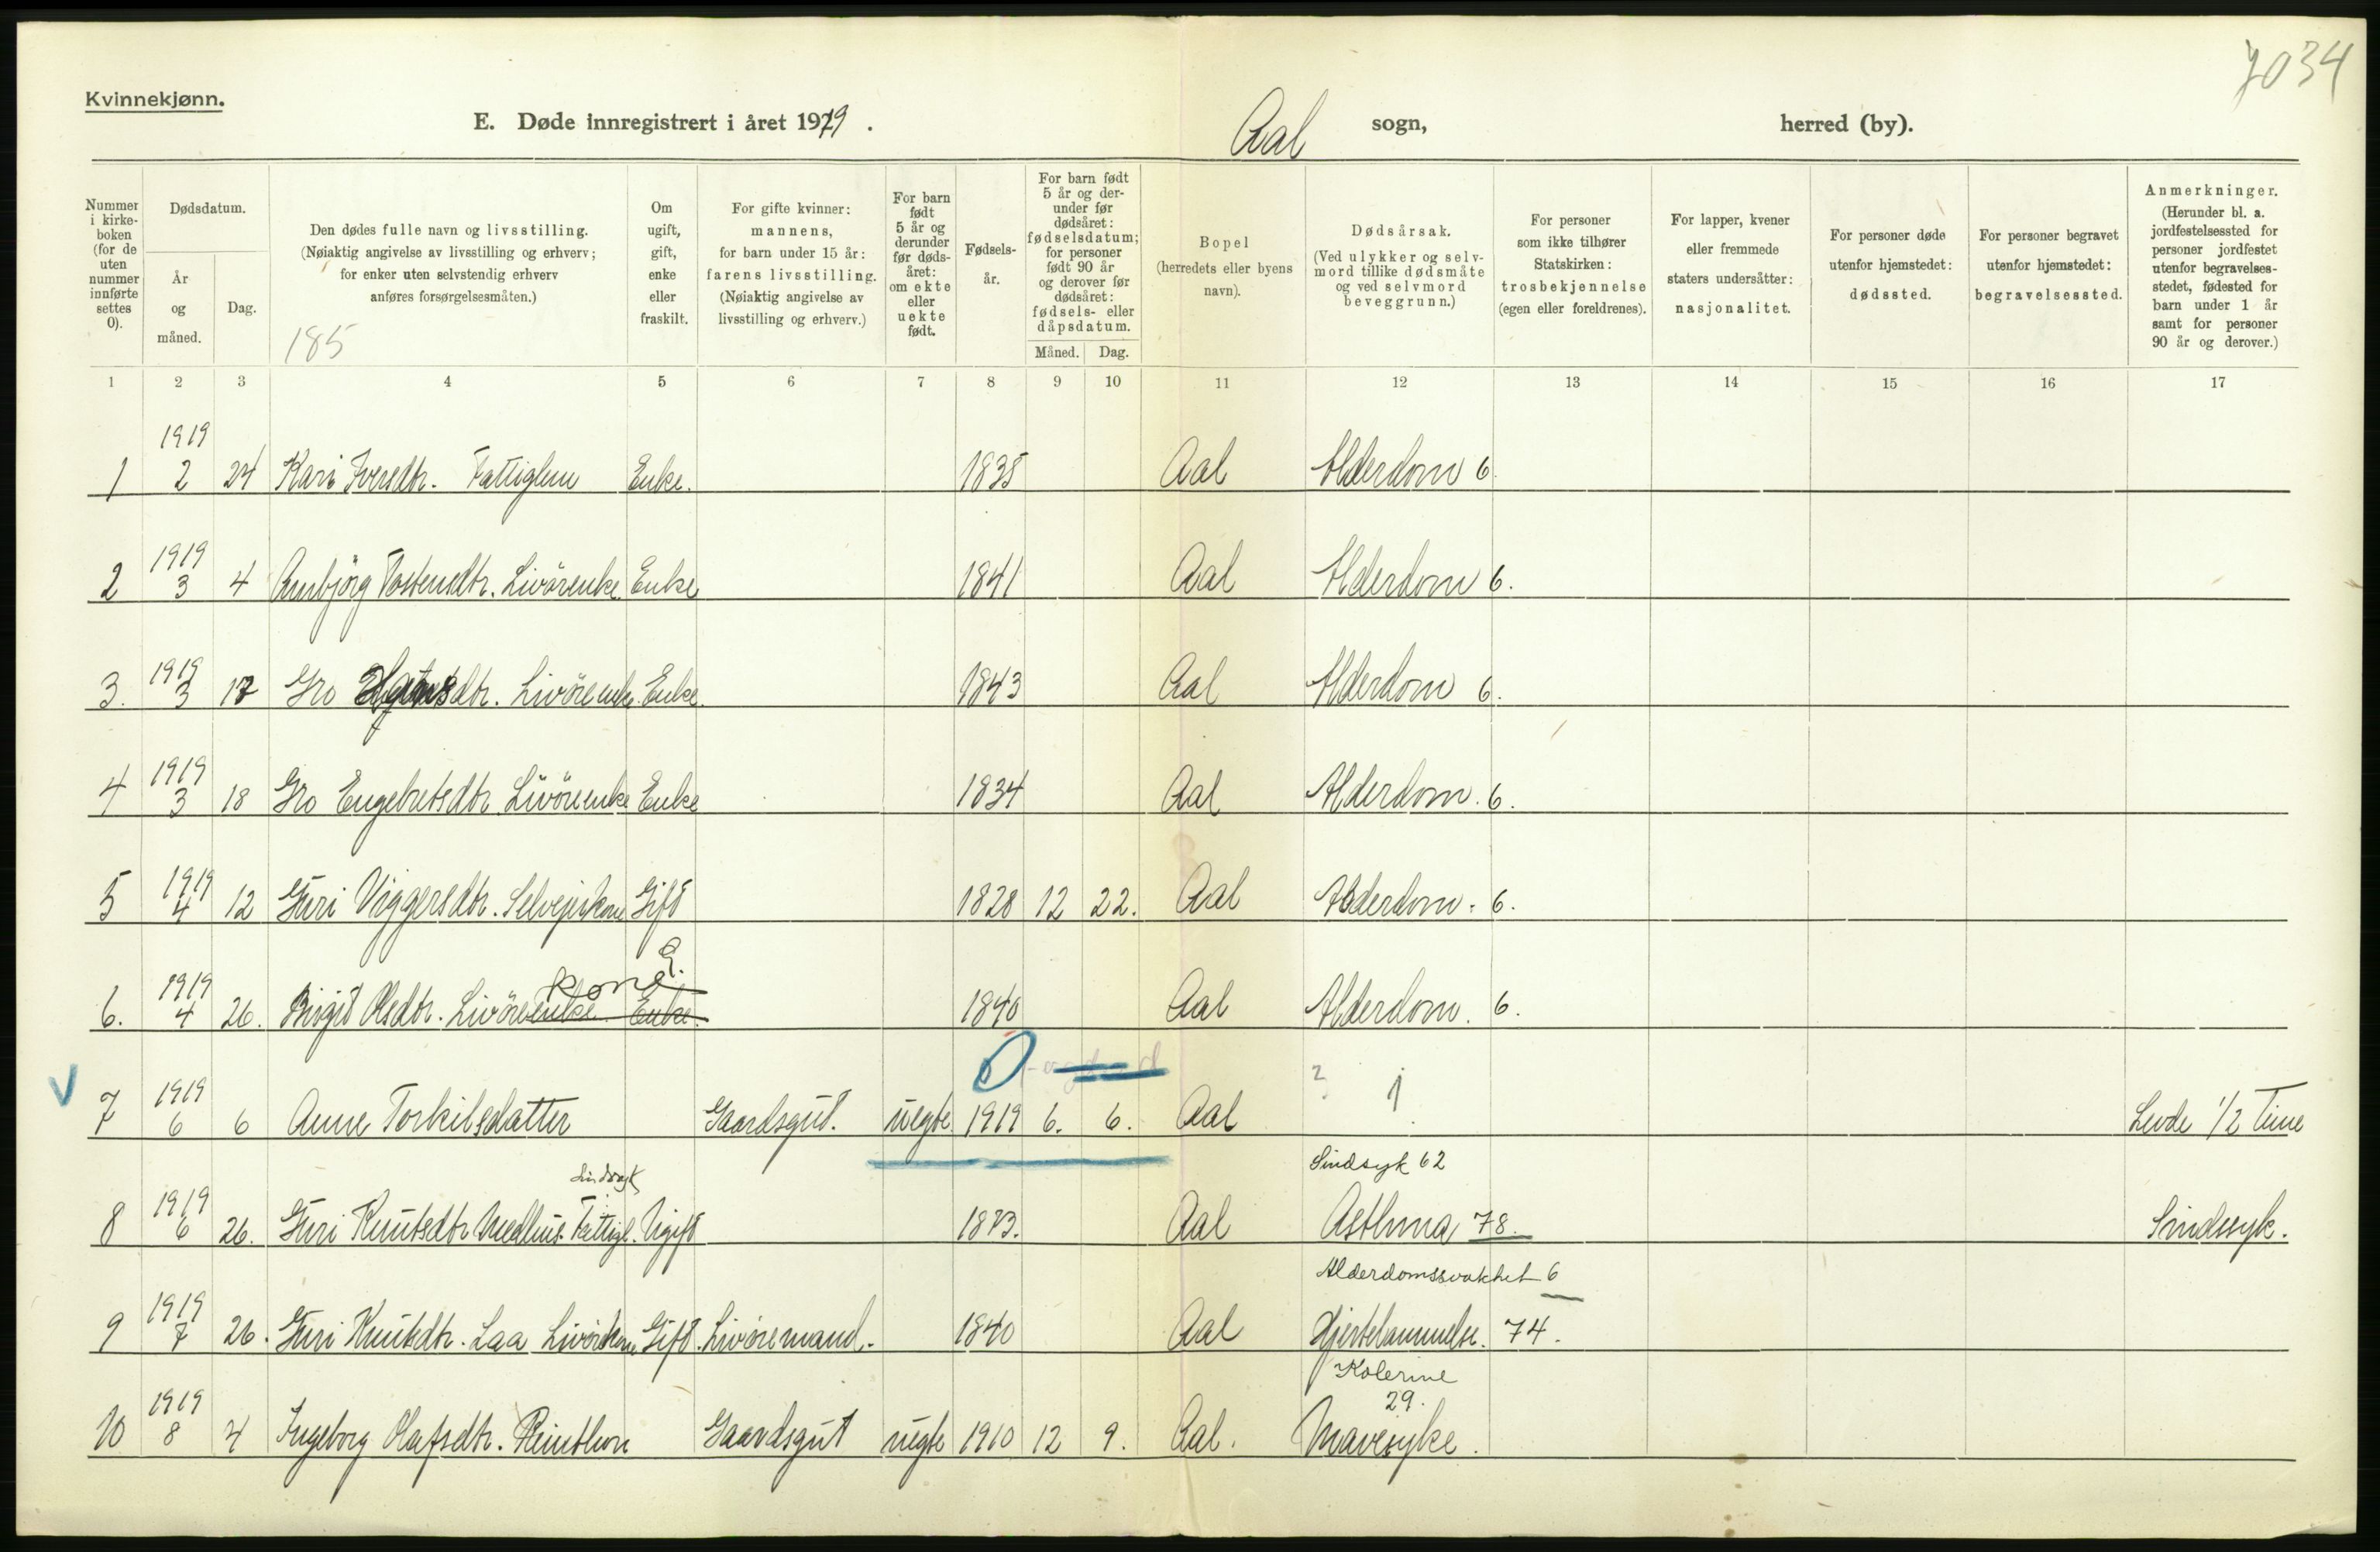 7034
Kvinnekjønn.
E. Døde innregistrert i året 1919.
Aal sogn, herred (by).
Nummer i kirke-boken (for de uten nummer innførte settes 0).
Dødsdatum.
År og måned.
Dag.
Den dødes fulle navn og livsstilling.
(Nøiaktig angivelse av livsstilling og erhverv; for enker uten selvstendig erhverv anføres forsørgelsesmåten.)
185
Om ugift, gift, enke eller fraskilt.
For gifte kvinner: mannens, for barn under 15 år: farens livsstilling.
(Nøiaktig angivelse av livsstilling og erhverv.)
For barn født 5 år og derunder før døds-året: om ekte eller uekte født.
Fødsels-år.
For barn født 5 år og der-under før dødsåret: fødselsdatum; for personer født 90 år og derover før dødsåret: fødsels- eller dåpsdatum.
Måned. Dag.
Bopel
(herredets eller byens navn).
Dødsårsak.
(Ved ulykker og selv-mord tillike dødsmåte og ved selvmord beveggrunn.)
For personer som ikke tilhører Statskirken: trosbekjennelse (egen eller foreldrenes).
For lapper, kvener eller fremmede staters undersåtter: nasjonalitet.
For personer døde utenfor hjemstedet: dødssted.
For personer begravet utenfor hjemstedet: begravelsessted.
Anmerkninger.
(Herunder bl. a. jordfestelsessted for personer jordfestet utenfor begravelses-stedet, fødested for barn under 1 år samt for personer 90 år og derover.)
1 2 3 4 5 6 7 8 9 10 11 12 13 14 15 16 17
1919
1 2 24 Kari Iversdtr. Fattiglem Enke. 1835 Aal Alderdom 6.
1919
2 3 4 Anbjörg Tostensdtr. Livörenke Enke 1841 Aal Alderdom 6.
1919
3. 3 17 Gro dtr. Livöreenke Enke. 1843 Aal Alderdom 6.
1919
4 3 18 Gro Engebretsdtr. Livöreenke Enke 1834 Aal Alderdom. 6.
1919
5 4 12 Guri Viggersdtr. Selveierkone Gift 1828 12 22. Aal Alderdom. 6.
kone G.
1919
6. 4 26. Birgit Olsdtr. Livöreenke Enke. 1840 Aal Alderdom. 6.
1919
7 6 6 Anne Torkilsdatter Gaardsgut. uegte 1919 6. 6. Aal Levde 1/2 Time
Sindsyk Sindsyk 62
1919
8 6 26. Guri Knutsdtr Medhus Fattigl. Ugift 1873. Aal Asthma 78. Sindssyk.
Alderdomssvakhet 6
1919
9 7 26. Guri Knutsdtr. Laa Livörskone Gift. Livöremand. 1840 Aal Hjertelammelse. 74.
Kolerine
29.
1919
10 8 4 Ingeborg Olafsdtr. Gaardsgut uegte 1910 12 9. Aal. Mavesyke.